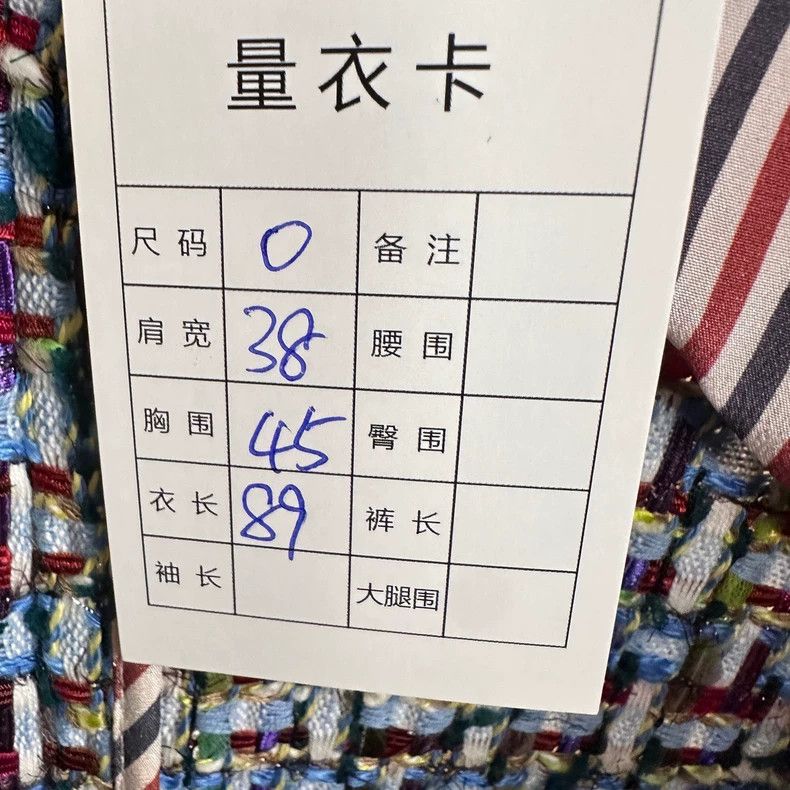 量衣卡
尺码 0 备注
肩宽 38 腰围
胸围 45 臀围
衣长 89 裤长
袖长 大腿围